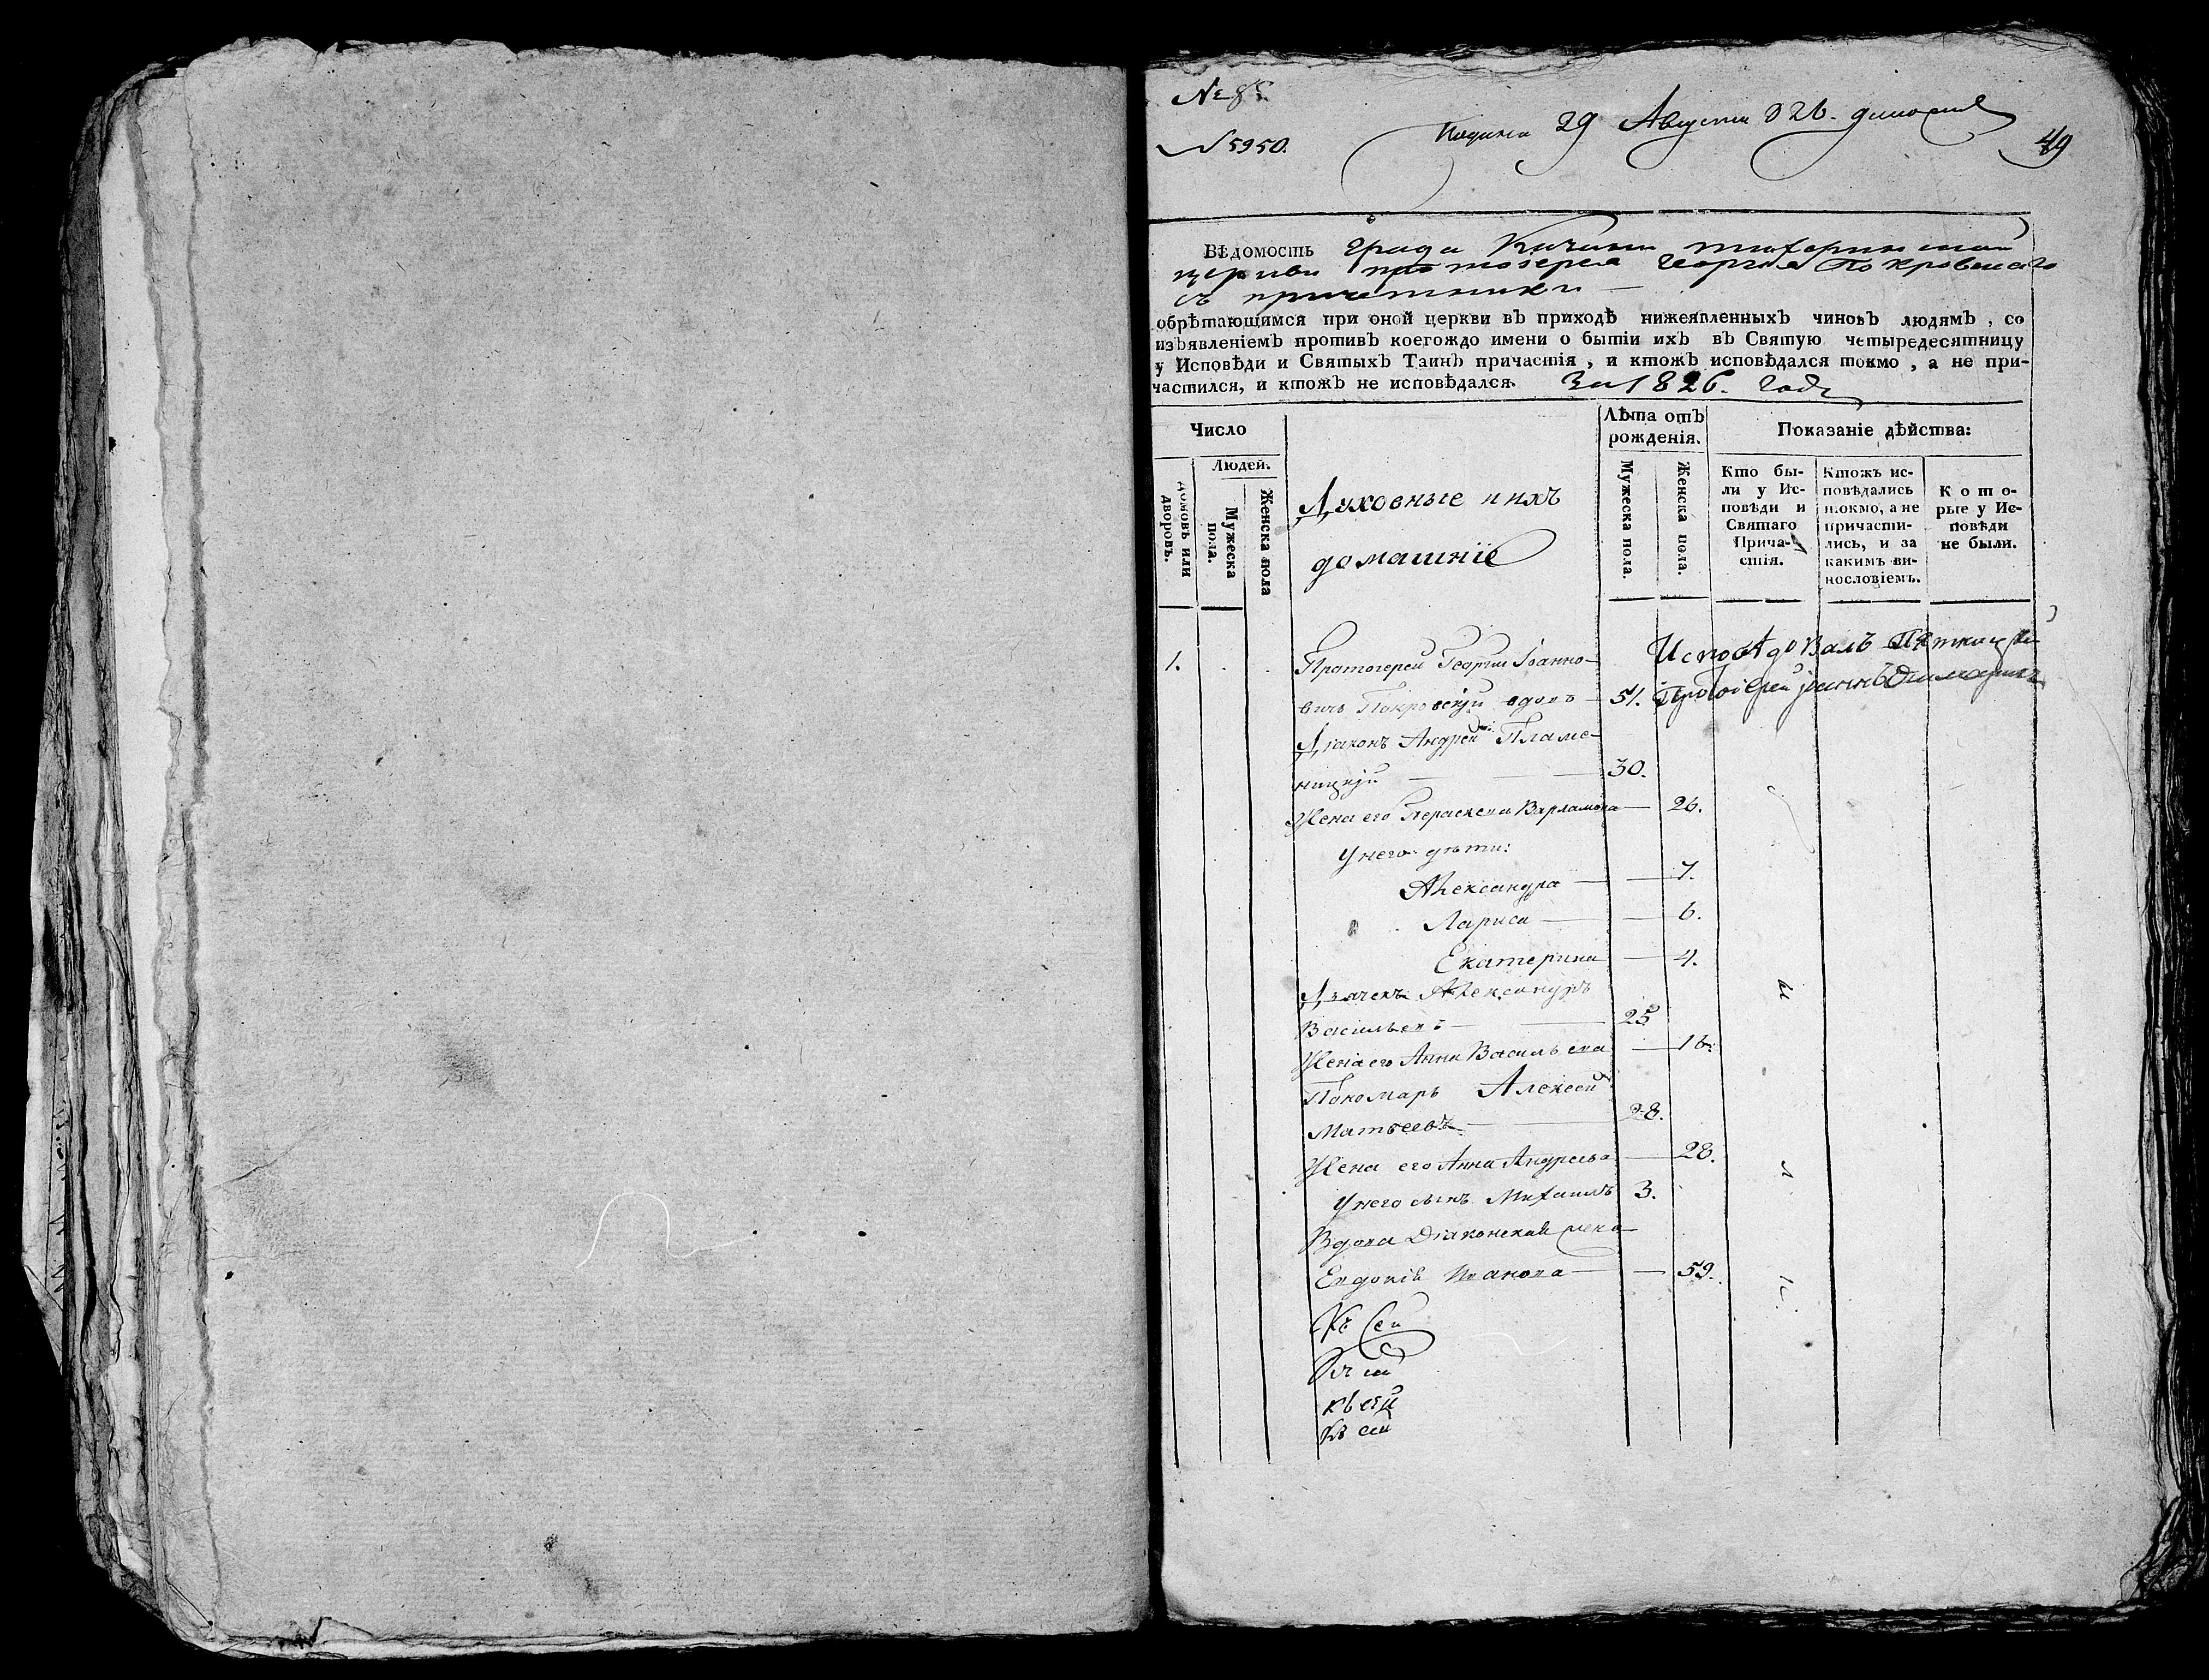 № 85
№ 5950.
Подана 29 Августа 826. года
49
Вѣдомость града Казани тихвинской
церкви протоіерея Георгія Покровскаго
съ причетники —
обрѣтающимся при оной церкви въ приходѣ нижеявленныхъ чиновъ людямъ, со
изъявленіемъ противъ коегождо имени о бытіи ихъ въ Святую четыредесятницу
у Исповѣди и Святыхъ Таинъ причастія, и ктожъ исповѣдался токмо, а не при-
частился, и ктожъ не исповѣдался. За 1826. годъ
Число
Людей.
Домовъ или дворовъ.
Мужеска пола.
Женска пола
Духовные и ихъ
домашніе
Лѣта отъ
рожденія.
Мужеска пола.
Женска пола.
Показаніе дѣйства:
Кто бы-
ли у Ис-
повѣди и
Святаго
Прича-
стія.
Ктожъ ис-
повѣдались
токмо, а не
причасти-
лись, и за
какимъ ви-
нословіемъ.
Кото-
рые у Ис-
повѣди
не были.
1.
Протоіерей Георгій Іоанно-
вичь Покровскій вдовъ — 51.
Исповѣдовалъ
Протоіерей
Діаконъ Андрей Пламе-
ницкій — 30.
Жена его Параскева Варламова — 26.
У него дѣти:
Александра — 7.
Лариса — 6.
Екатерина — 4.
Дьячекъ Александръ
Васильевъ — 25
Жена его Анна Васильева — 18.
Пономарь Алексей
Матвеевъ — 28.
Жена его Анна Андреева — 28.
У него сынъ Михаилъ 3.
Вдова Діаконская жена
Евдокія Иванова — 59.
Къ сей
Къ сей
къ сей
Къ сей